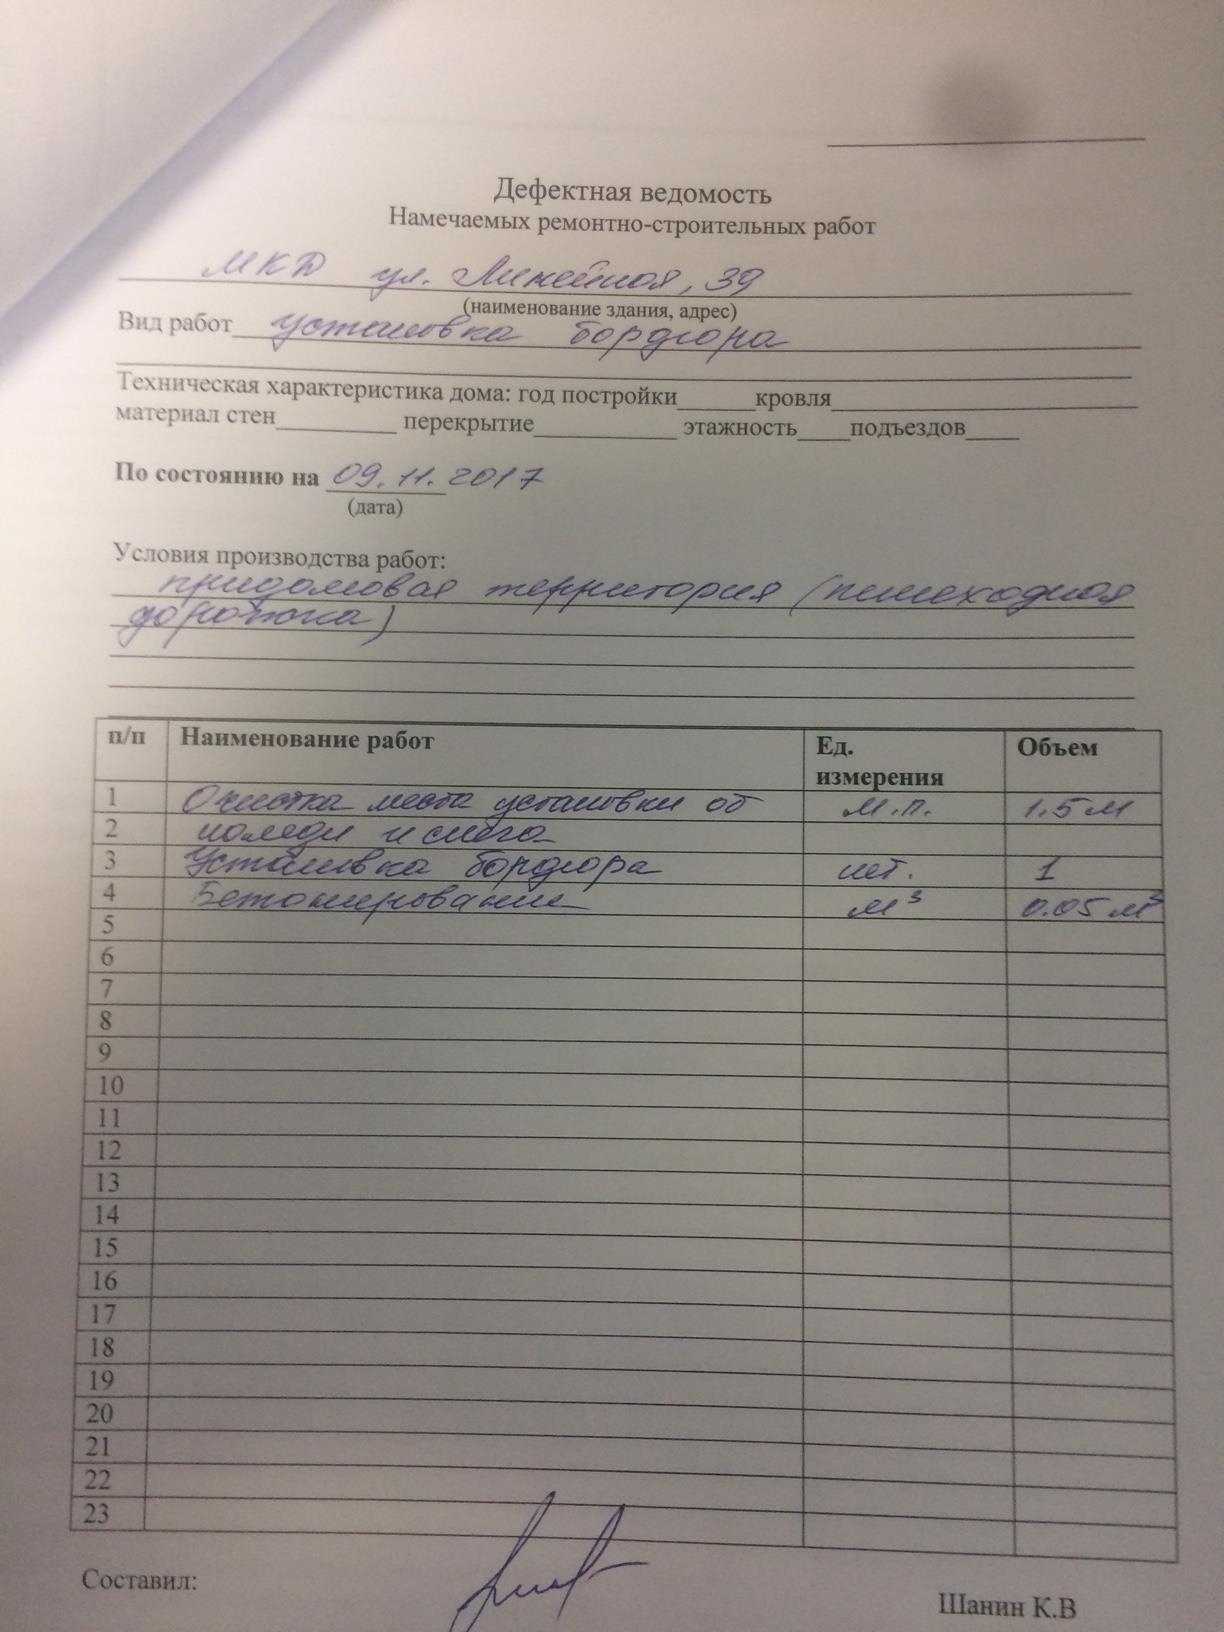 Дефектная ведомость
Намечаемых ремонтно-строительных работ
МКД ул. Линейная, 39
(наименование здания, адрес)
Вид работ установка бордюра
Техническая характеристика дома: год постройки______кровля______
материал стен______ перекрытие______ этажность____подъездов____
По состоянию на 09.11.2017
(дата)
Условия производства работ:
придомовая территория (пешеходная
дорожка)
п/п Наименование работ Ед. измерения Объем
1 Очистка места установки от м.п. 1.5 м
2 наледи и снега
3 Установка бордюра шт. 1
4 Бетонирование м³ 0.05 м³
5
6
7
8
9
10
11
12
13
14
15
16
17
18
19
20
21
22
23
Составил: Шанин К.В